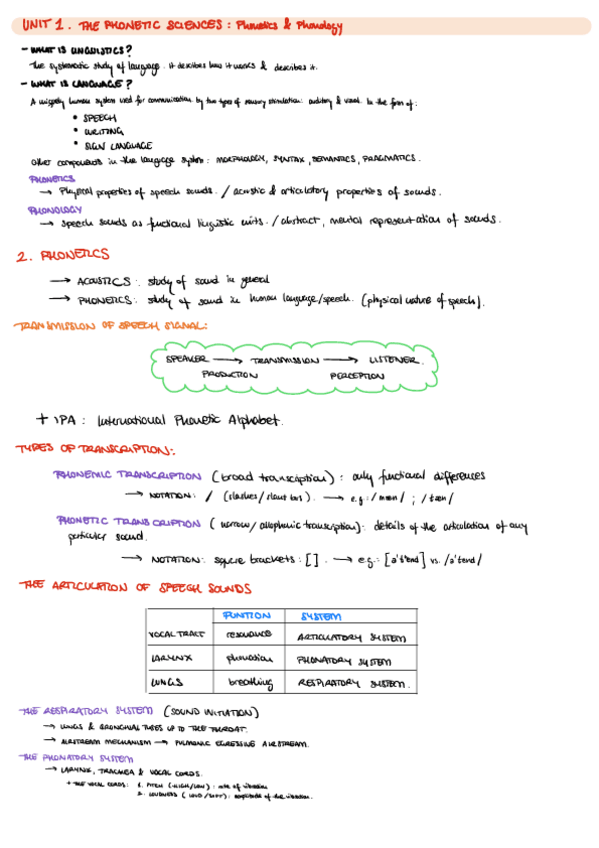 UNIT 1. THE PHONETIC SCIENCES: Phonetics & Phonology
- WHAT IS LINGUISTICS?
The systematic study of language. It describes how it works & describes it.
- WHAT IS LANGUAGE?
A uniquely human system used for communication by two types of sensory stimulation: auditory & visual. In the form of:
• SPEECH
• WRITING
• SIGN LANGUAGE
Other components in the language system: MORPHOLOGY, SYNTAX, SEMANTICS, PRAGMATICS.
PHONETICS
→ Physical properties of speech sounds. / acoustic & articulatory properties of sounds.
PHONOLOGY
→ Speech sounds as functional linguistic units. / abstract, mental representation of sounds.
2. PHONETICS
→ ACOUSTICS: study of sound in general
→ PHONETICS: study of sound in human language/speech. (physical nature of speech).
TRANSMISSION OF SPEECH SIGNAL:
SPEAKER → TRANSMISSION → LISTENER.
PRODUCTION PERCEPTION
+ IPA: International Phonetic Alphabet.
TYPES OF TRANSCRIPTION:
PHONEMIC TRANSCRIPTION (broad transcription): only functional differences
→ NOTATION: / (slashes/slant bars). → e.g: /mæn/ ; /tæn/
PHONETIC TRANSCRIPTION (narrow/allophonic transcription): details of the articulation of any
particular sound.
→ NOTATION: square brackets: [ ]. → e.g.: [ə'tʰend] vs. /ə'tend/
THE ARTICULATION OF SPEECH SOUNDS
FUNTION SYSTEM
VOCAL TRACT resonance ARTICULATORY SYSTEM
LARYNX phonation PHONATORY SYSTEM
LUNGS breathing RESPIRATORY SYSTEM.
THE RESPIRATORY SYSTEM (SOUND INITIATION)
→ LUNGS & BRONCHIAL TUBES UP TO THE THROAT.
→ AIRSTREAM MECHANISM → PULMONIC EGRESSIVE AIRSTREAM.
THE PHONATORY SYSTEM
→ LARYNX, TRACHEA & VOCAL CORDS.
+ THE VOCAL CORDS: 1. PITCH (HIGH/LOW): rate of vibration
2. LOUDNESS (LOUD/SOFT): amplitude of the vibration.